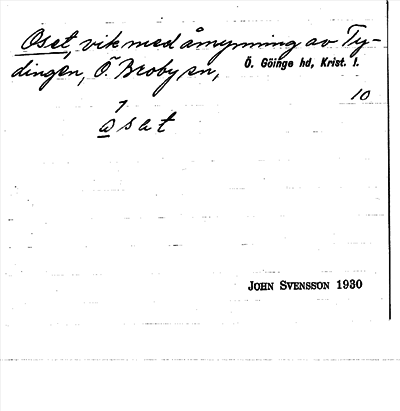 Oset, vik med åmynning av Ty-
dingen, Ö. Broby sn, Ö. Göinge hd, Krist. l.
10
a s a t
JOHN SVENSSON 1930